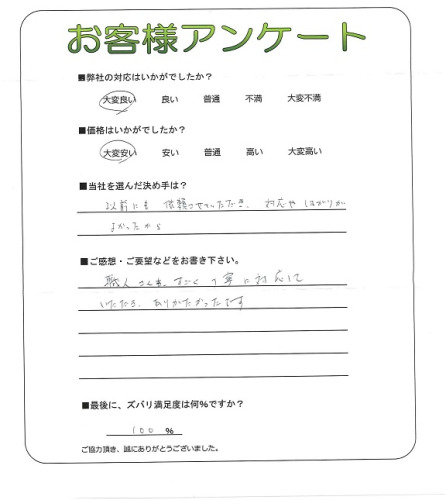 お客様アンケート
■弊社の対応はいかがでしたか？
大変良い 良い 普通 不満 大変不満
■価格はいかがでしたか？
大変安い 安い 普通 高い 大変高い
■当社を選んだ決め手は？
以前にも 依頼させていただき、対応や 仕上がりが
よかったから
■ご感想・ご要望などをお書き下さい。
職人さんも、すごく 丁寧に対応して
いただき、ありがたかったです
■最後に、ズバリ満足度は何%ですか？
100 %
ご協力頂き、誠にありがとうございました。